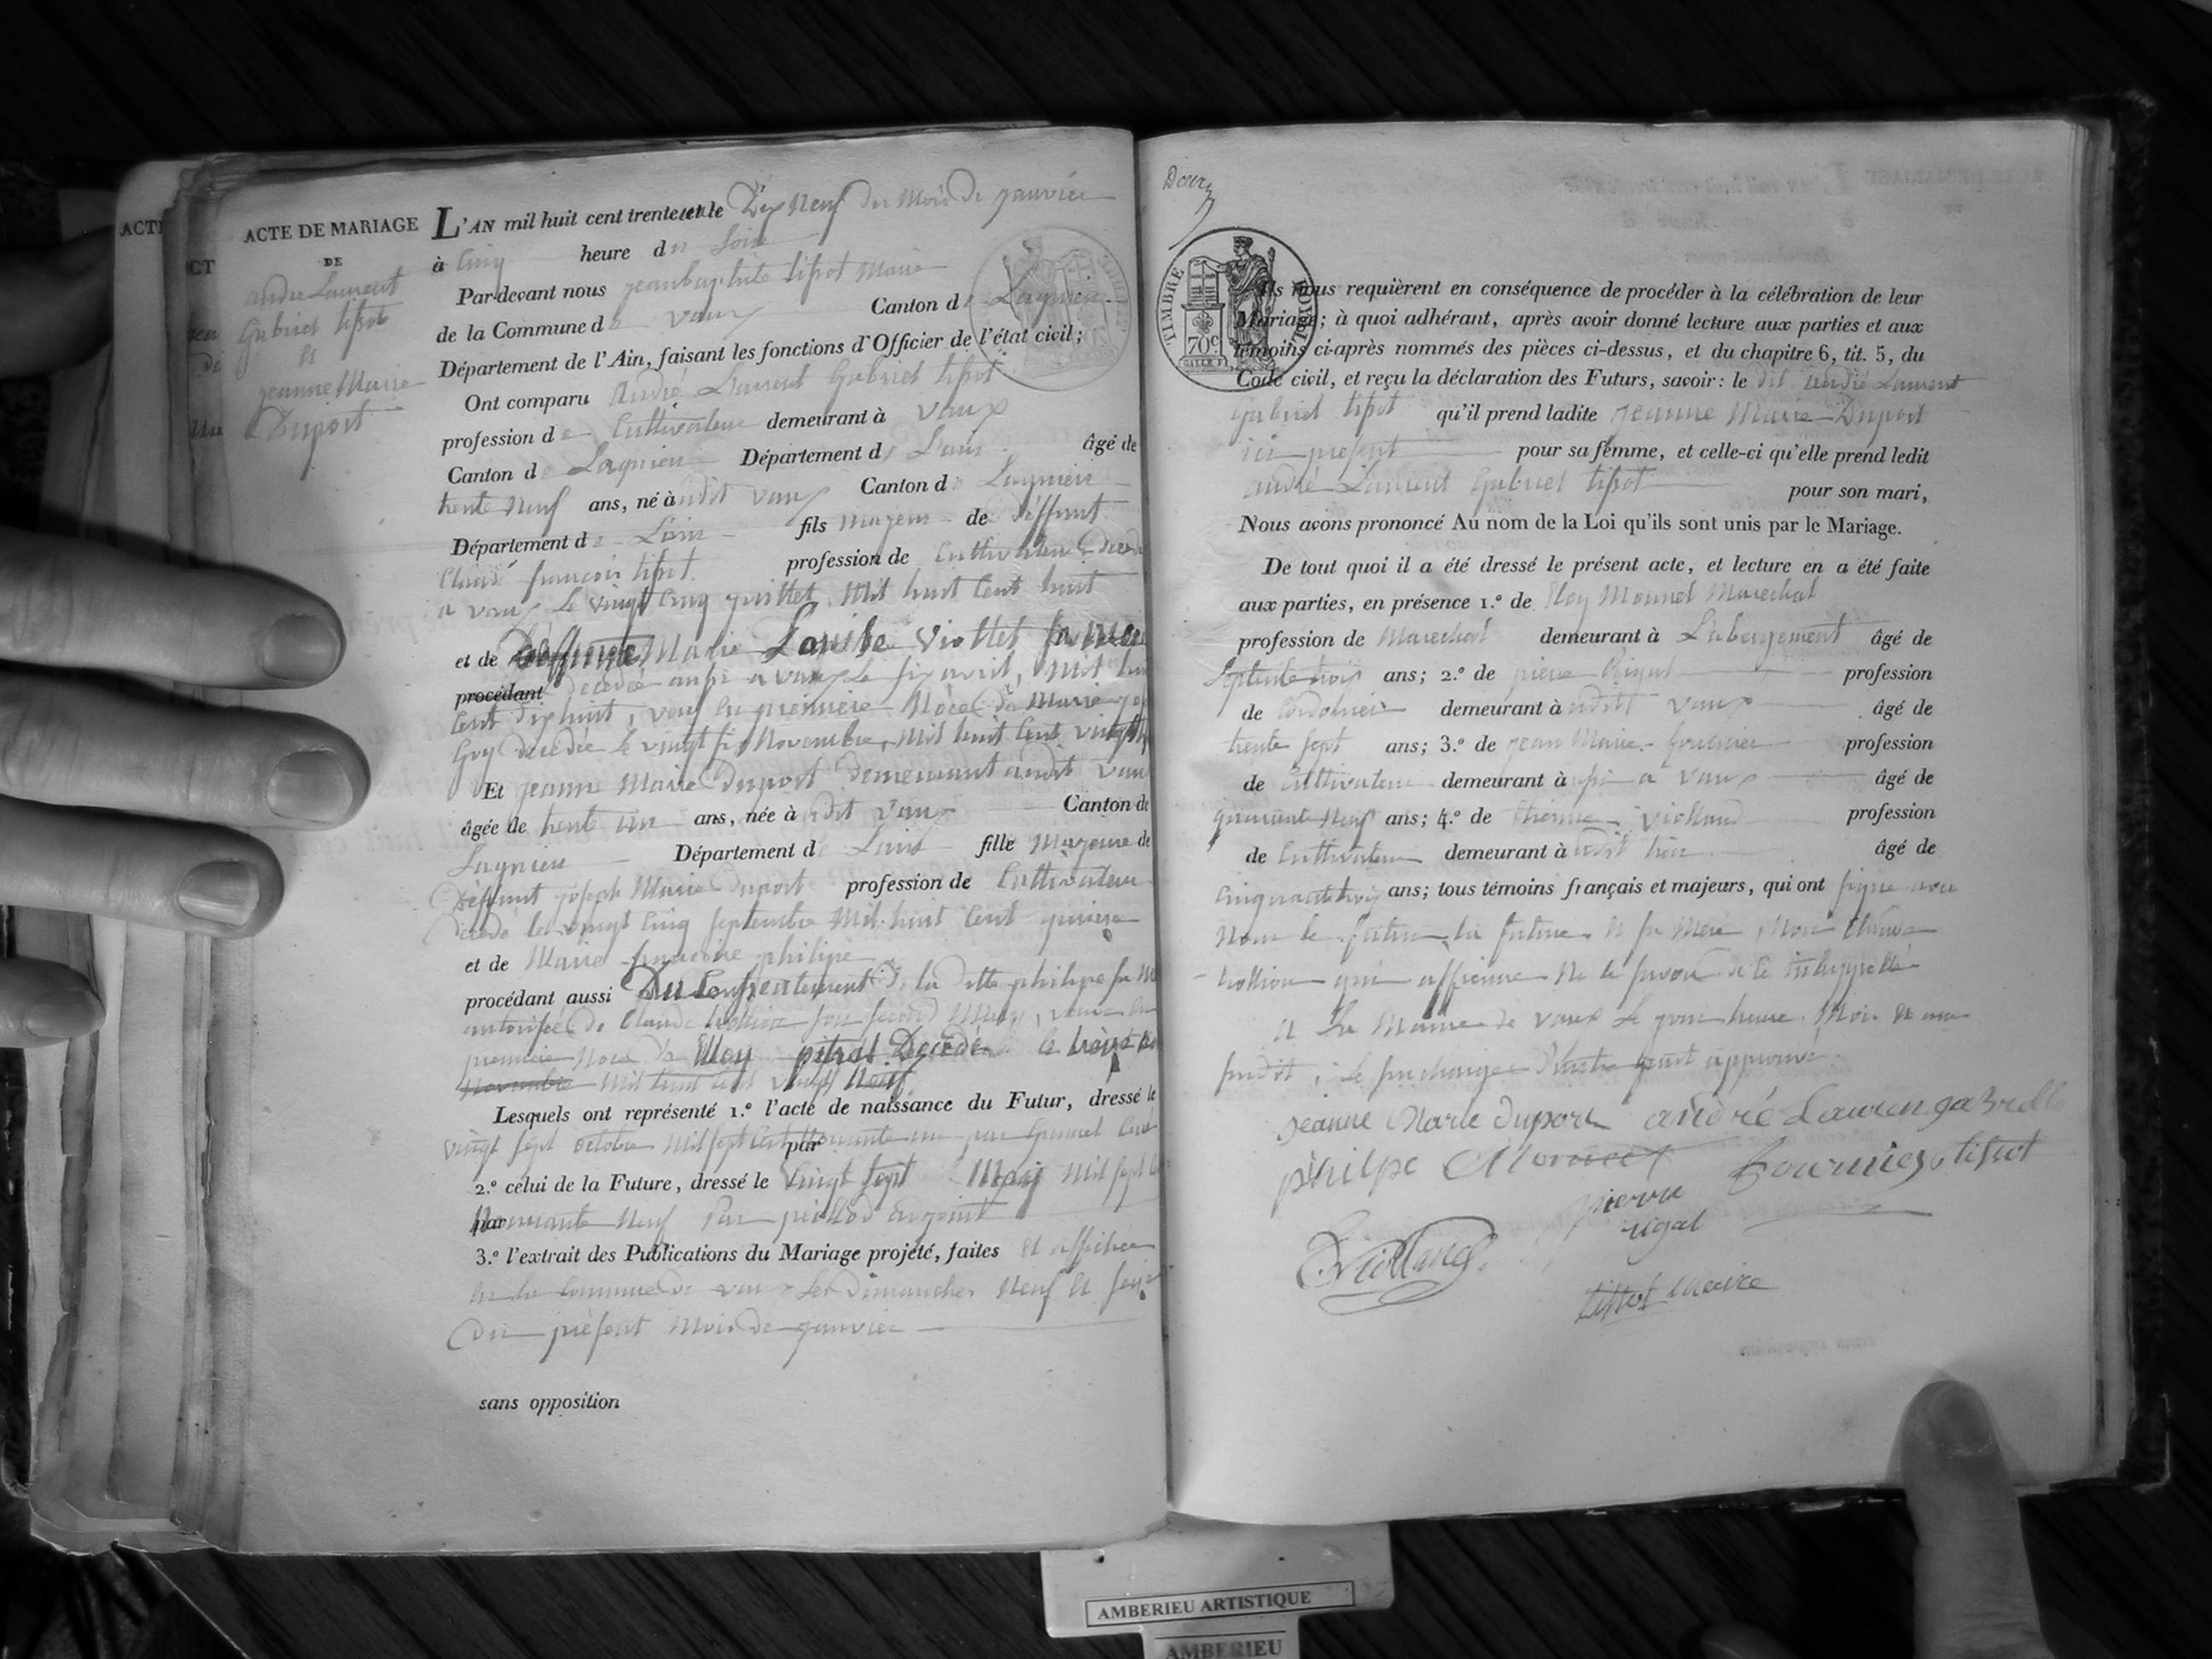 ACTE DE MARIAGE
DE
andré Laurent
Gabriel tissot
et
jeanne Marie
Duport
L'AN mil huit cent trente le Dix Neuf du Mois de janvier
à Cinq heure du Soir
Par-devant nous jeanbaptiste tissot Maire
de la Commune de vaux Canton de Lagnieu
Département de l'Ain, faisant les fonctions d'Officier de l'état civil;
Ont comparu André Laurent Gabriel tissot
profession de Cultivateur demeurant à vaux
Canton de Lagnieu Département de Lain âgé de
trente Neuf ans, né à udit vaux Canton de Lagnieu
Département de Lain fils majeur de deffunt
Claude françois tissot profession de Cultivateur
a vaux le vingt Cinq juillet Mil huit Cent huit
et de Marie Louise viottet sa
procédant décédée aussi a vaux le six avril, Mil
Cent dix huit, veuf en première Noce de Marie
Guy décédée le vingt six Novembre, Mil huit Cent vingt
Et jeanne Marie Duport demeurant audit vaux
âgée de trente un ans, née à udit vaux Canton de
Lagnieu Département de Lain fille Majeure de
deffunt joseph Marie Duport profession de Cultivateur
décédé le vingt Cinq septembre Mil huit Cent quinze
et de Marie françoise philipe
procédant aussi Du Consentement de la ditte philipe sa
autorisée de Claude son second Mary, veuve en
première Noce de Décédé le
Novembre Mil huit Cent vingt Neuf
Lesquels ont représenté 1.º l'acte de naissance du Futur, dressé le
vingt sept octobre Mil sept Cent Nonante un par
par
2.º celui de la Future, dressé le vingt sept May Mil sept
par Nonante Neuf Par adjoint
3.º l'extrait des Publications du Mariage projeté, faites et affichée
en la Commune de vaux Les Dimanches Neuf et seize
du présent Mois de janvier
sans opposition
TIMBRE ROYAL
70c
Ils nous requièrent en conséquence de procéder à la célébration de leur
Mariage; à quoi adhérant, après avoir donné lecture aux parties et aux
témoins ci-après nommés des pièces ci-dessus, et du chapitre 6, tit. 5, du
Code civil, et reçu la déclaration des Futurs, savoir: le dit andré Laurent
Gabriel tissot qu'il prend ladite jeanne Marie Duport
ici present pour sa femme, et celle-ci qu'elle prend ledit
andré Laurent Gabriel tissot pour son mari,
Nous avons prononcé Au nom de la Loi qu'ils sont unis par le Mariage.
De tout quoi il a été dressé le présent acte, et lecture en a été faite
aux parties, en présence 1.º de Eloy Monnet Marechal
profession de Marechal demeurant à L'abergement âgé de
septente trois ans; 2.º de pierre Rigal profession
de Cordonnier demeurant à udit vaux âgé de
trente sept ans; 3.º de jean Marie fournier profession
de Cultivateur demeurant à ussi a vaux âgé de
quarante Neuf ans; 4.º de Etienne violland profession
de Cultivateur demeurant à udit lieu âgé de
Cinquante trois ans; tous témoins français et majeurs, qui ont signé avec
Nous le futur, la future et sa Mère, Non Claude
qui affirme Ne le savoir de ce
a La Mairie de vaux Le jour heure Mois et an
susdit, Le surcharge approuvé
jeanne Marie duport andré Lauren gabrielle
philipe Monnet fournier tissot
pierre
rigal
Violland
tissot Maire
AMBERIEU ARTISTIQUE
AMBERIEU